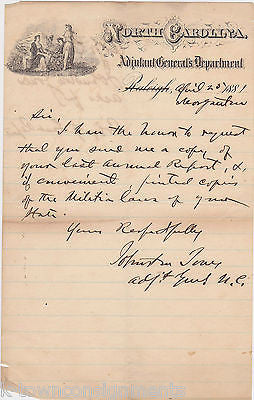 North Carolina.
Adjutant General's Department
Raleigh, April 25th 1881
Morganton
Sir,
I have the honor to request
that you send me a copy of
your last Annual Report, &,
if convenient, printed copies
of the Militia Laws of your
State.
Yours Respectfully
Johnston Jones
adj't Genl N.C.